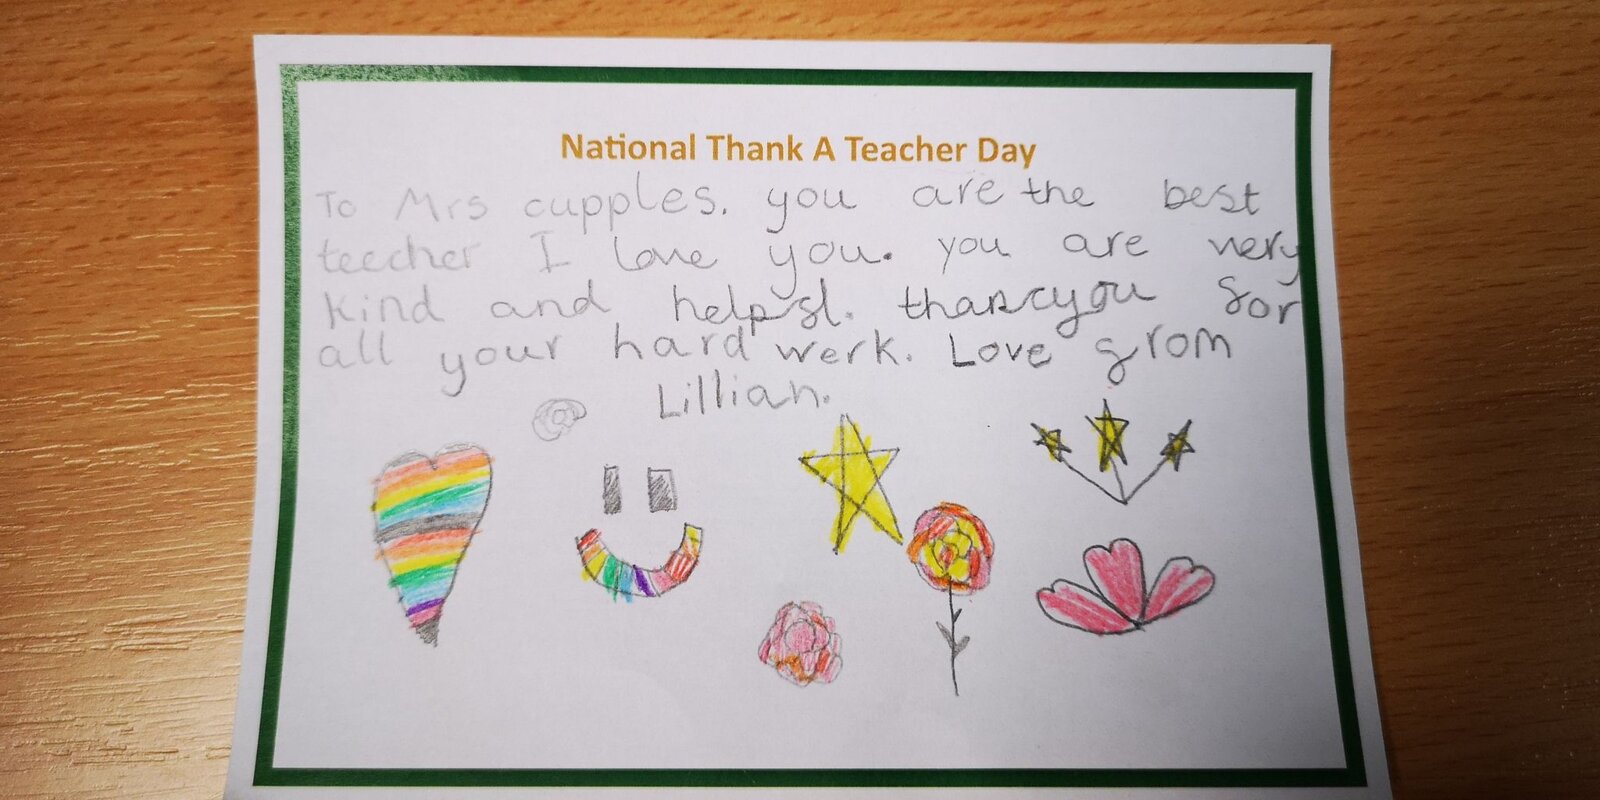 National Thank A Teacher Day
To Mrs cupples. you are the best
teecher I love you. you are very
kind and helpfl. thankyou for
all your hard werk. Love from
Lillian.